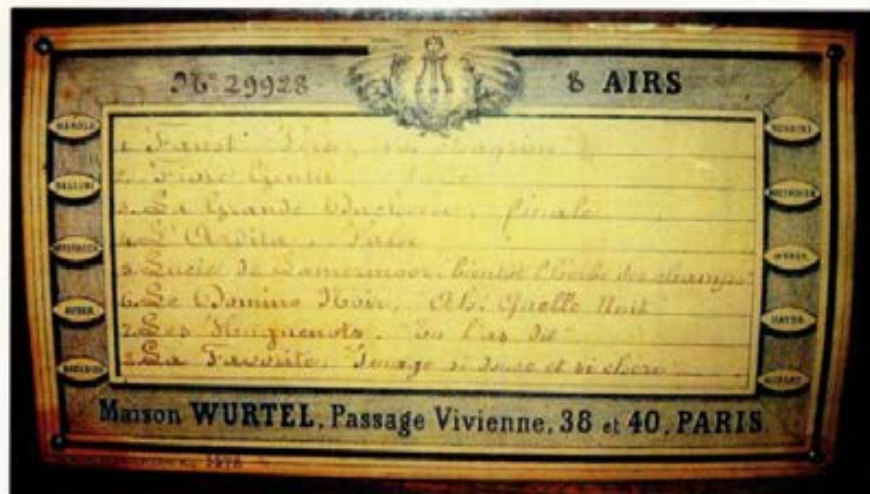 No 29928 8 AIRS
HÉROLD
BELLINI
MEYERBEER
AUBER
ROSSINI
BEETHOVEN
WEBER
HAYDN
MOZART
1. Faust
2. Fiore Gentil,
3. La Grande Duchesse, finale
4. L'Ardita, Valse
5. Lucie de Lamermoor, bientôt l'herbe des champs
6. Le Domino Noir, "Ah! Quelle Nuit"
7. Les Huguenots. "Tu l'as dit"
8. La Favorite, "Image si douce et si chère"
Maison WURTEL, Passage Vivienne, 38 et 40, PARIS